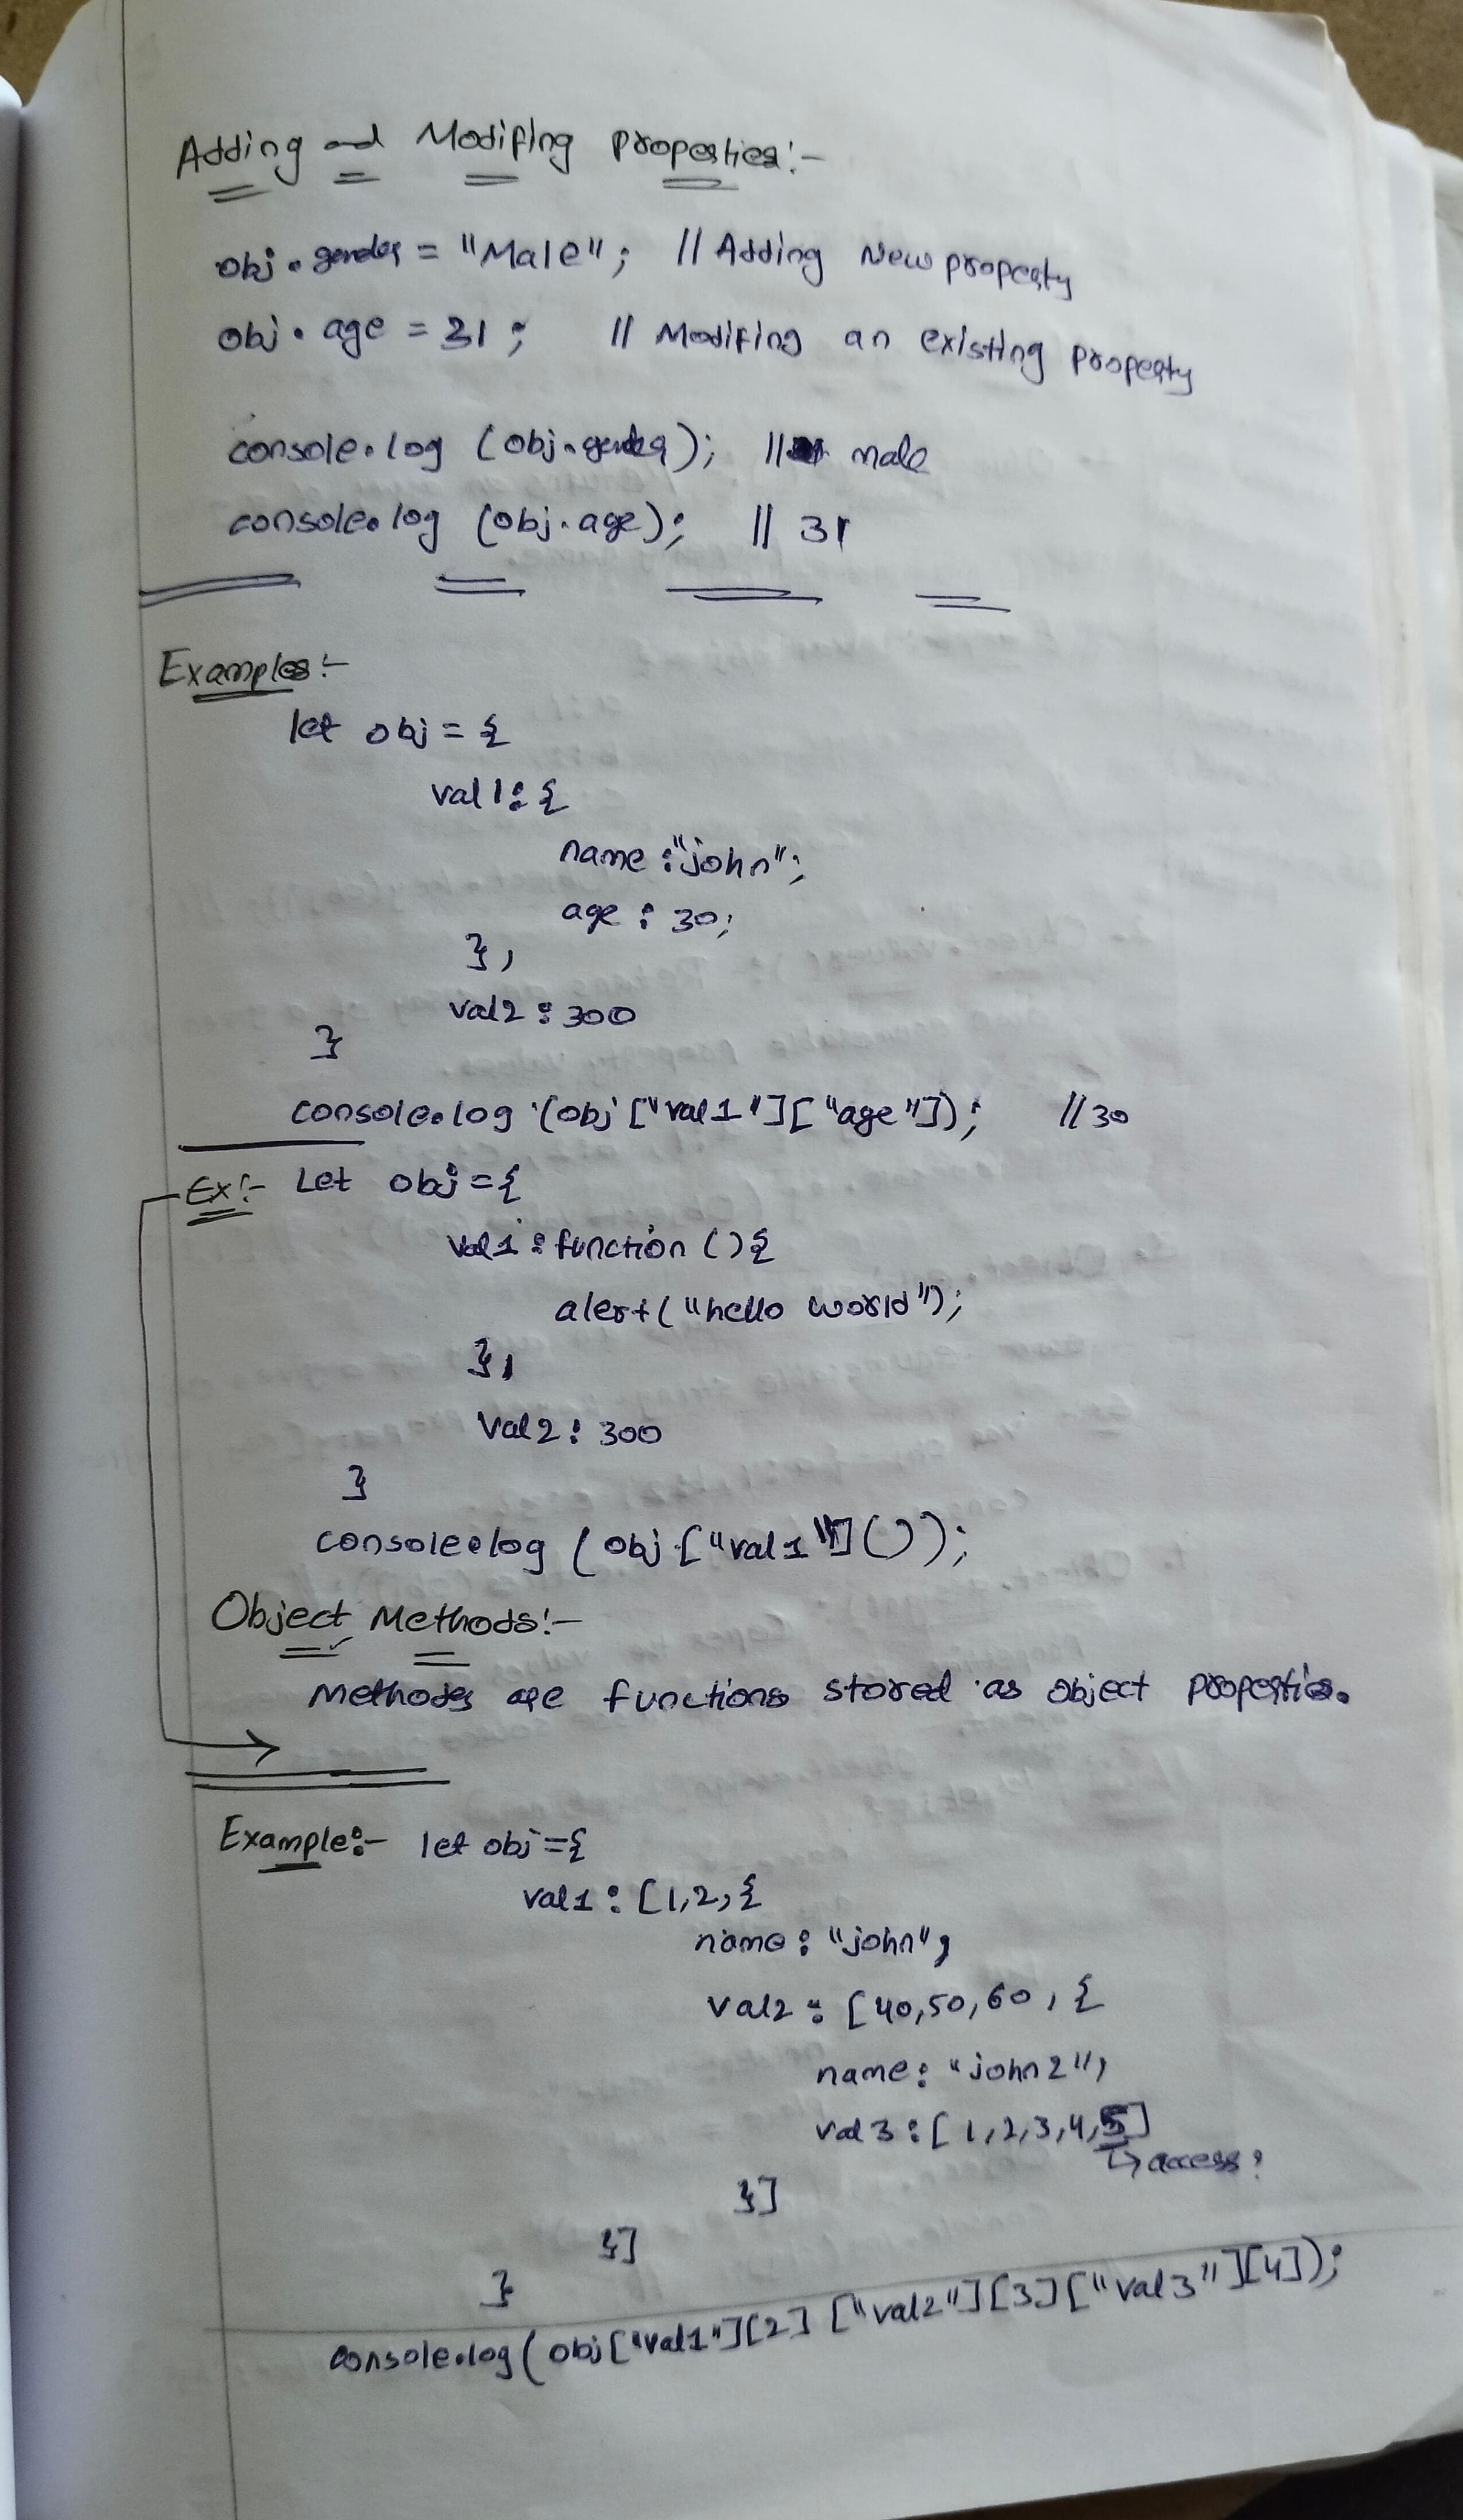 Adding and Modifing properties:-
obj.gender = "Male"; // Adding New property
obj.age = 31; // Modifing an existing property
console.log (obj.gender); // male
console.log (obj.age); // 31
Examples:-
let obj = {
val1: {
name :"john";
age : 30;
},
val2 : 300
}
console.log (obj ["val1"]["age"]); // 30
Ex:- Let obj = {
val1 : function () {
alert ("hello world");
},
Val2 : 300
}
console.log (obj ["val1"] ());
Object Methods:-
Methodes are functions stored as object properties.
Example:- let obj = {
val1 : [1,2, {
name : "john",
val2 : [40,50,60, {
name : "john2",
val3 : [1,2,3,4,5]
↳ access?
}]
}]
}
console.log (obj ["val1"][2] ["val2"][3]["val3"][4]);